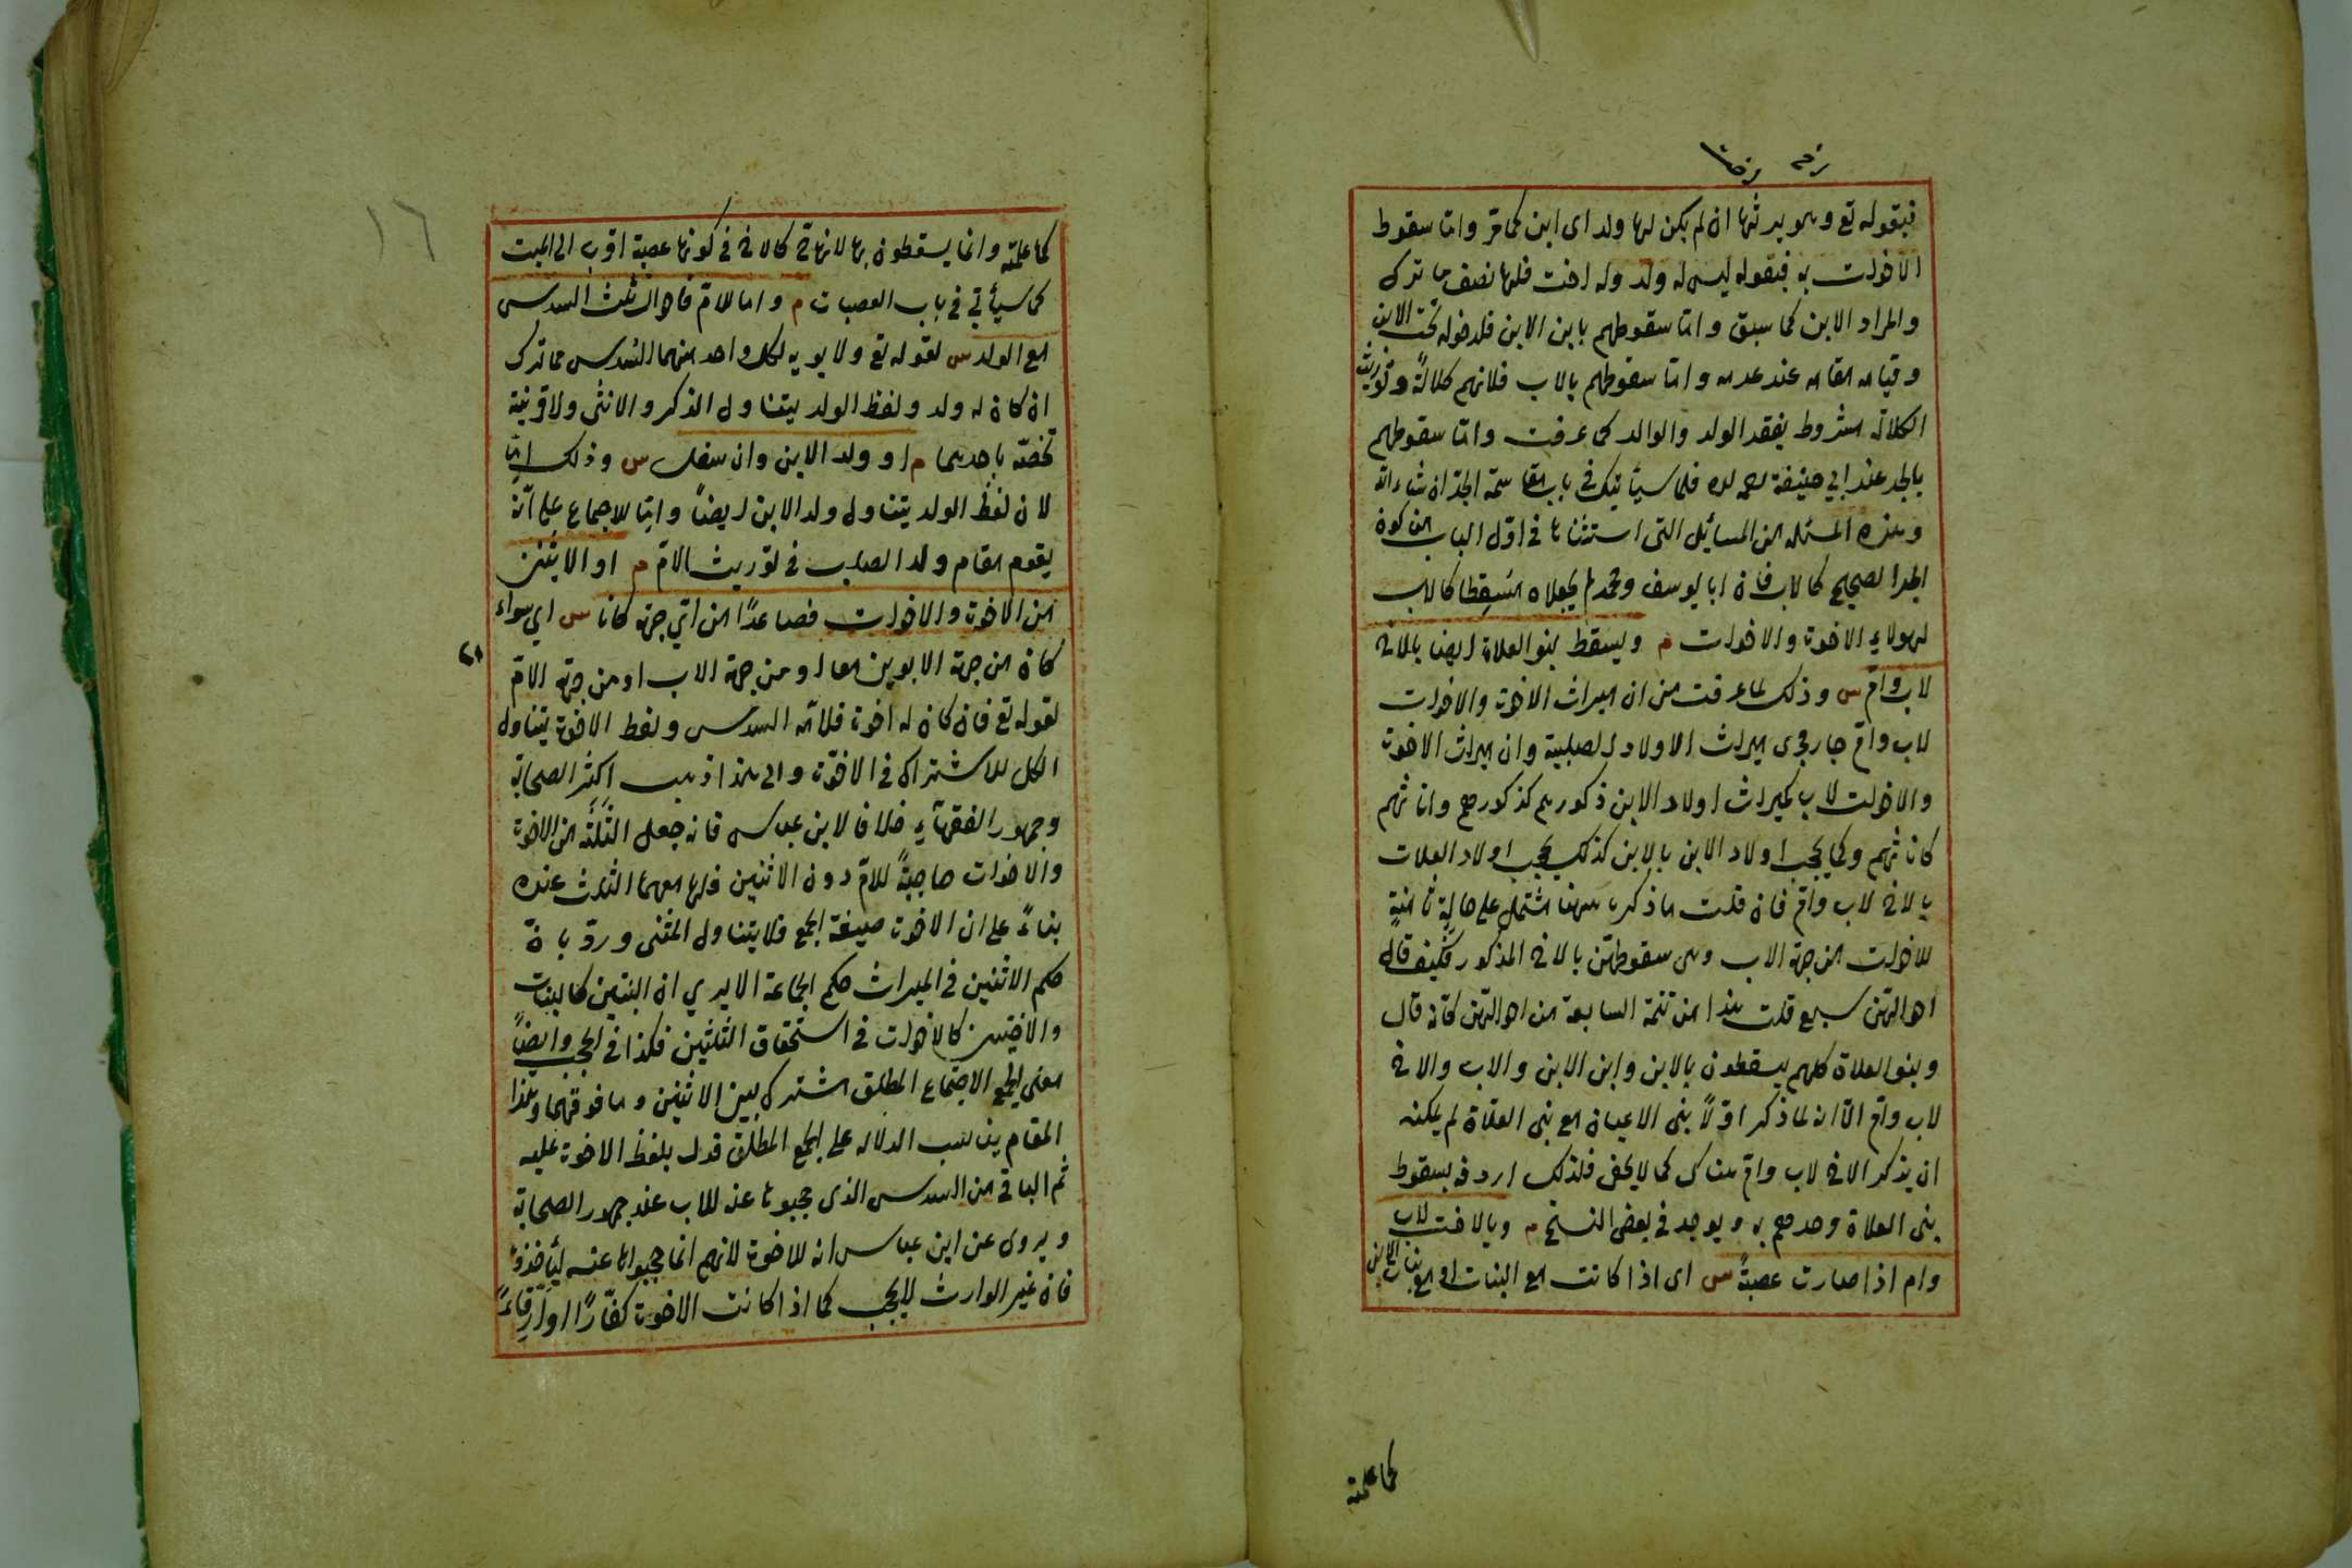 فبقوله تع وهو يرثها ان لم يكن لها ولد اى ابن كما مرّ وامّا سقوط
الاخوات به فبقوله ليس له ولد وله اخت فلها نصف ما ترك
والمراد الابن كما سبق وامّا سقوطهم بابن الابن فلدخوله تحت الابن
وقيامه مقامه عند عدمه وامّا سقوطهم بالاب فلانهم كلالةً وتوريث
الكلالة مشروط بفقد الولد والوالد كما عرفت وامّا سقوطهم
بالجد عند ابي حنيفة رحمه الله فلما سيأتيك في باب مقاسمة الجدّ ان شاء الله
وهذه المسئله من المسائل التى استثناها في اوّل الباب من كون
الجد الصحيح كالاب فان ابا يوسف ومحمد لم يجعلاه مُسقِطا كالاب
لهولاء الاخوة والاخوات م ويسقط بنو العلاة ايضا بالاخ
لاب وامّ س وذلك لما عرفت من ان ميراث الاخوة والاخوات
لاب وامّ جار مجرى ميراث الاولاد الصلبية وان ميراث الاخوة
والاخوات لاب كميراث اولاد الابن ذكورهم كذكورهم واناثهم
كاناثهم وكما يحجب اولاد الابن بالابن كذلك يحجب اولاد العلات
بالاخ لاب وامّ فان قلت ما ذكره ههنا مشتمل على حالةٍ ثامنةٍ
للاخوات من جهة الاب وهى سقوطهنّ بالاخ المذكور فكيف قال
احوالهنّ سبع قلت هذا من تتمة السابعة من احوالهنّ فكانه قال
وبنو العلاة كلهم يسقطون بالابن وابن الابن والاب والاخ
لاب وامّ الّا ان لما ذكر اوّلاً بنى الاعيان مع بنى العلاة لم يمكنه
ان يذكر الاخ لاب وامّ هناك كما لا يخفى فلذلك اردفه بسقوط
بنى العلاة وحدهم به ويوجد في بعض النسخ م وبالاخت لاب
وام اذا صارت عصبةً س اى اذا كانت مع البنات او مع بنات الابن
كما علمته
١٦
كما علمته وانما يسقطون بها لانها ح كالاخ في كونها عصبة اقرب الى الميت
كما سيأتي في باب العصبات م واما للامّ فاحوال ثلث السدس
مع الولد س لقوله تع ولابويه لكل واحد منهما السُدس مما ترك
ان كان له ولد ولفظ الولد يتناول الذكر والانثى ولا قرينة
تخصّه باحدهما م او ولد الابن وان سفل س وذلك امّا
لان لفظ الولد يتناول ولد الابن ايضاً وامّا للاجماع على انّه
يقوم مقام ولد الصلب في توريث الامّ م او الاثنين
من الاخوة والاخوات فصاعدًا من اىّ جهة كانا س اي سواء
كان من جهة الابوين معا او من جهة الاب او من جهة الامّ
لقوله تع فان كان له اخوة فلامّه السدس ولفظ الاخوة يتناول
الكل للاشتراك في الاخوّة والى هذا ذهب اكثر الصحابة
وجمهور الفقهآء خلافا لابن عباس فانه جعل الثلثة من الاخوة
والاخوات حاجبةً للامّ دون الاثنين فلها معهما الثلث عنده
بناءً على ان الاخوة صيغة الجمع فلا يتناول المثنى وردّ بانّ
حكم الاثنين في الميراث حكم الجماعة الا يرى ان البنتين كالبنات
والاختين كالاخوات في استحقاق الثلثين فكذا في الحجب وايضاً
معنى الجمع الاجتماع المطلق مشترك بين الاثنين وما فوقهما وهذا
المقام يناسب الدلالة على الجمع المطلق فدل بلفظ الاخوة عليه
ثم الباقى من السدس الذى حجبوها عنه للاب عند جمهور الصحابة
ويروى عن ابن عباس انه للاخوة لانهم انما حجبوها عنه ليأخذوه
فان غير الوارث لا يحجب كما اذا كانت الاخوة كفّارًا او ارقاءً